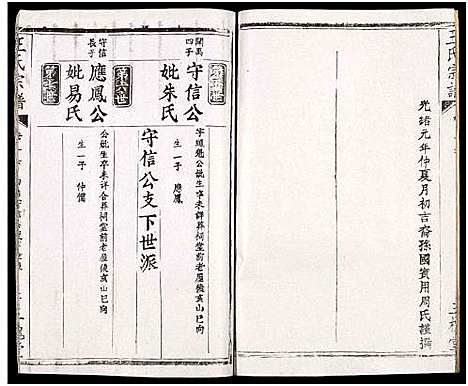 王氏宗譜
光緒元年仲夏月初吉裔孫國賓用周氏謹撰
守信公支下世派
開萬四子
守信公
妣朱氏
字鳳魁公妣生卒未詳葬祠堂前老屋後亥山巳向
生一子 應鳳
守信長子
應鳳公
妣易氏
公妣生卒未詳合葬祠堂前老屋後亥山巳向
生一子 仲儒
王氏宗譜